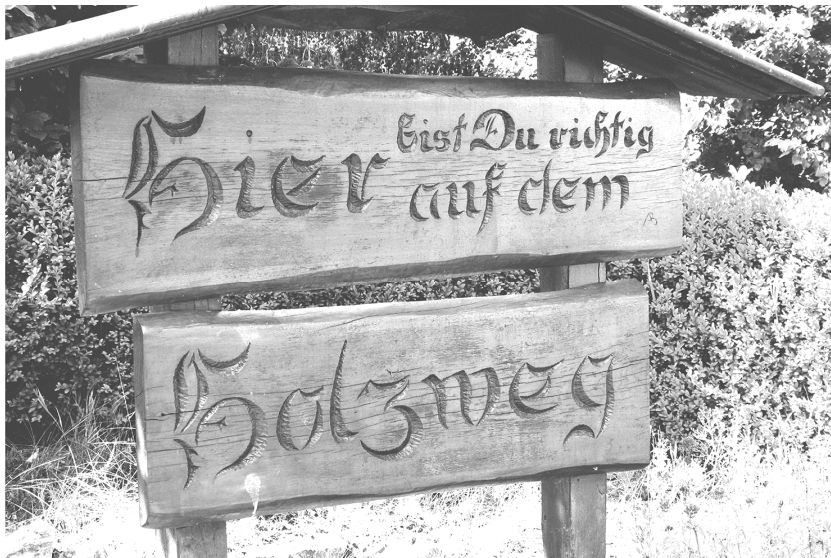 Hier bist Du richtig
auf dem
Holzweg